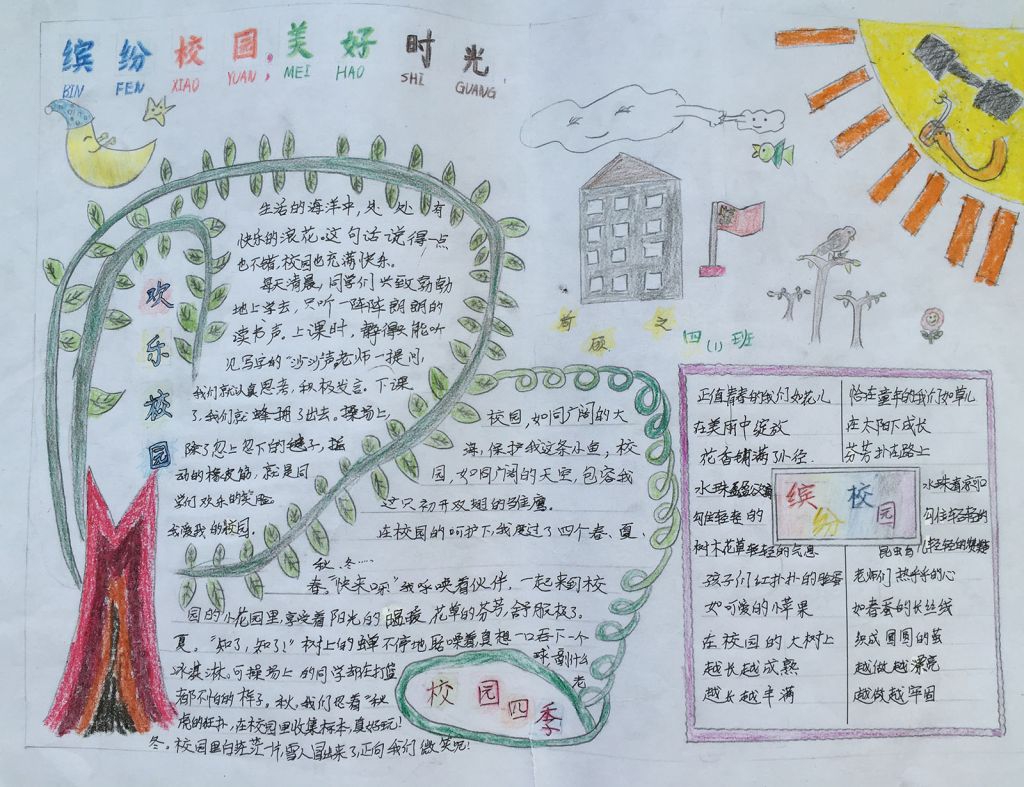 缤纷校园,美好时光
BIN FEN XIAO YUAN, MEI HAO SHI GUANG
欢乐校园
生活的海洋中,处处有
快乐的浪花。这句话说得一点
也不错,校园也充满快乐。
每天清晨,同学们兴致勃勃
地上学去,只听一阵阵朗朗的
读书声。上课时,静得只能听
见写字的"沙沙"声,老师一提问,
我们就认真思考,积极发言。下课
了,我们就蜂拥了出去。操场上,
除了忽上忽下的毽子,摇
动的橡皮筋,就是同
学们欢乐的笑脸。
我爱我的校园。
四(1)班
校园,如同广阔的大
海,保护我这条小鱼,校
园,如同广阔的天空,包容我
这只初开双翅的雏鹰。
在校园的呵护下,我度过了四个春、夏、
秋、冬……
春,"快来呀"我呼唤着伙伴,一起来到校
园的小花园里,享受着阳光的温暖,花草的芬芳,舒服极了。
夏,"知了,知了!"树上的蝉不停地
真想一口吞下一个
冰淇淋,可操场上的同学都在打篮
球,
什么
都不怕的样子。秋,我们忍着"秋
老
虎的
,在校园里收集标本,真好玩!
冬,校园里白
一片,雪人
出来了,正向我们微笑呢!
校园四季
正值青春的我们如花儿
在美雨中绽放
花香铺满了小径
水珠
勾住轻轻的
树木花草轻轻的气息
孩子们红扑扑的脸蛋
如可爱的小苹果
在校园的大树上
越长越成熟
越长越丰满
缤纷校园
恰在童年的我们如草儿
在太阳下成长
芬芳扑在路上
水珠
勾住轻轻的
昆虫
轻轻的
老师们热乎乎的心
如春蚕的长丝线
织成圆圆的茧
越做越漂亮
越做越牢固